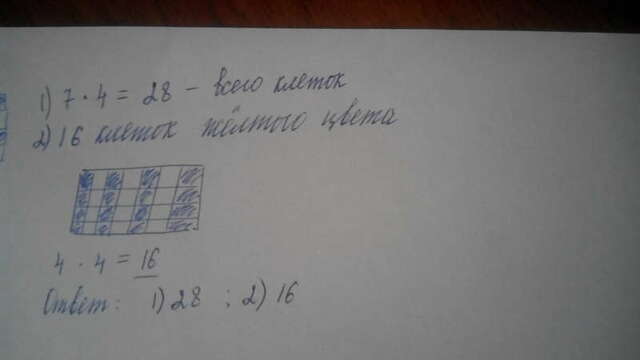 1) 7 · 4 = 28 – всего клеток
2) 16 клеток жёлтого цвета
4 · 4 = 16
Ответ: 1) 28 ; 2) 16